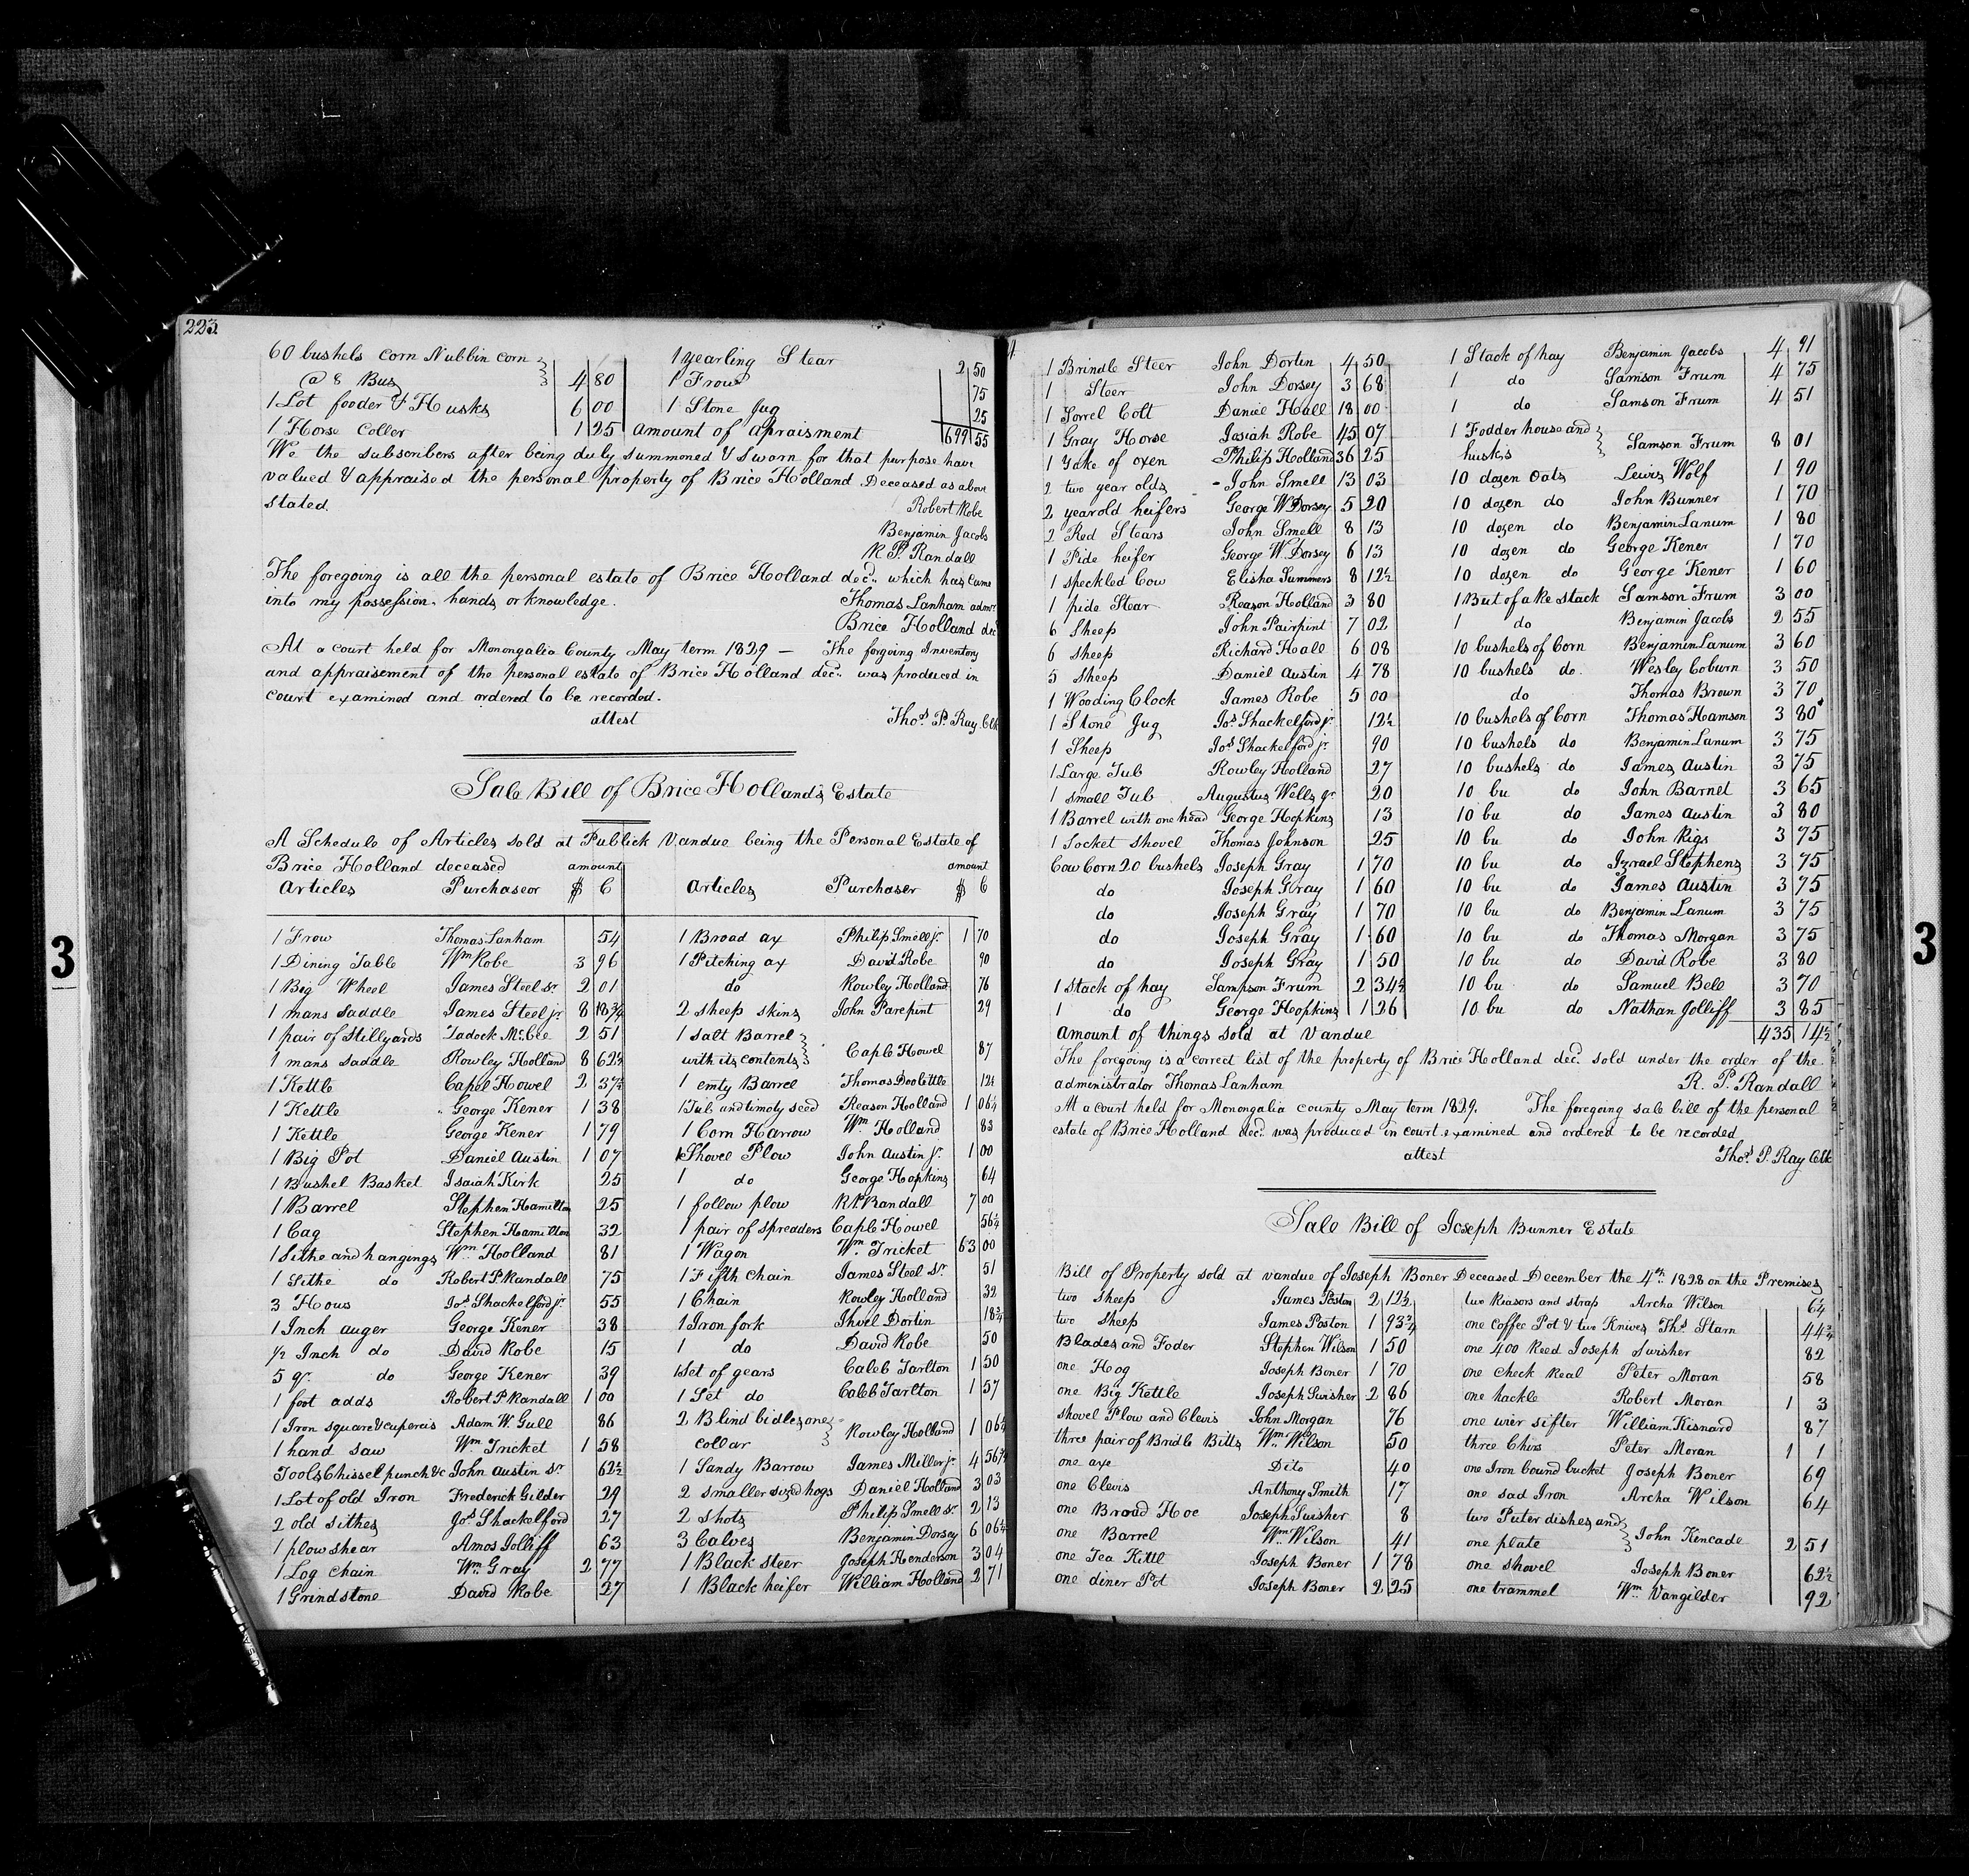 223
60 bushels corn Nubbin corn
@ 8 Bus 4 80
1 Lot fooder & Husks 6 00
1 Horse Coller 1 25
1 yearling Stear 2 50
1 Frow 75
1 Stone Jug 25
amount of apraisment 699 55
We the subscribers after being duly summoned & sworn for that purpose have
valued & appraised the personal property of Brice Holland Deceased as above
stated.
Robert Robe
Benjamin Jacobs
R. P. Randall
The foregoing is all the personal estate of Brice Holland decd. which has came
into my possession, hands or knowledge.
Thomas Lanham admr.
Brice Holland dec
At a court held for Monongalia County May term 1829 — The forgoing Inventory
and appraisement of the personal estate of Brice Holland decd. was produced in
court examined and ordered to be recorded.
attest Thos. P. Ray Clk
Sale Bill of Brice Hollands Estate
A Schedule of Articles sold at Publick Vandue being the Personal Estate of
Brice Holland deceased amount amount
Articles Purchaseor $ C Articles Purchaser $ C
1 Frow Thomas Lanham 54
1 Dining Table Wm Robe 3 96
1 Big Wheel James Steel Sr. 2 01
1 mans saddle James Steel jr. 8 18 3/4
1 pair of Stillyards Zadock McCee 2 51
1 mans saddle Rowley Holland 8 62 1/2
1 Kettle Capel Howel 2 37 1/2
1 Kettle George Kener 1 38
1 Kettle George Kener 1 79
1 Big Pot Daniel Austin 1 07
1 Bushel Basket Isaiah Kirk 25
1 Barrel Stephen Hamilton 25
1 Cag Stephen Hamilton 32
1 Sithe and hangings Wm. Holland 81
1 Sithe do Robert P Randall 75
3 Hows Jos. Shackelford jr. 55
1 Inch auger George Kener 38
1/2 Inch do David Robe 15
5 qr. do George Kener 39
1 foot adds Robert P Randall 1 00
1 Iron square & cupercis Adam W. Gull 86
1 hand saw Wm. Tricket 1 58
Tools Chissel punch &c John Austin Sr 62 1/2
1 Lot of old Iron Frederick Gilder 29
2 old sithes Jos. Shackelford 27
1 plow shear Amos Jolliff 63
1 Log chain Wm. Gray 2 77
1 Grindstone David Robe 27
1 Broad ax Philip Smell jr. 1 70
1 Pitching ax David Robe 90
do Rowley Holland 76
2 sheep skins John Parepint 29
1 salt Barrel
with its contents Caple Howel 87
1 emty Barrel Thomas Doolittle 12 1/2
1 Tub and timoty seed Reason Holland 1 06 1/4
1 Corn Harrow Wm. Holland 83
1 Shovel Plow John Austin jr. 1 00
1 do George Hopkins 64
1 follow plow R P Randall 7 00
1 pair of spreaders Caple Howel 56 1/4
1 Wagon Wm. Tricket 63 00
1 Fifth chain James Steel Sr. 51
1 Chain Rowley Holland 32
1 Iron fork Dortin 18 3/4
1 do David Robe 50
1 Set of gears Caleb Tarlton 1 50
1 Set do Caleb Tarlton 1 57
2 Blind bidles one
collar Rowley Holland 1 06 1/4
1 Sandy Barrow James Miller jr. 4 56 1/4
2 smaller sized hogs Daniel Holland 3 03
2 shots Philip Smell Sr. 2 13
3 Calves Benjamin Dorsey 6 06 1/4
1 Black steer Joseph Henderson 3 04
1 Black heifer William Holland 2 71
1 Brindle Steer John Dortin 4 50
1 Steer John Dorsey 3 68
1 Sorrel Colt Daniel Hall 18 00
1 Gray Horse Josiah Robe 45 07
1 Yoke of oxen Philip Holland 36 25
2 two year olds John Smell 13 03
2 year old heifers George W Dorsey 5 20
2 Red Stears John Smell 8 13
1 Pide heifer George W. Dorsey 6 13
1 speckled Cow Elisha Summers 8 12 1/2
1 pide Stear Reason Holland 3 80
6 Sheep John Pairpint 7 02
6 sheep Richard Hall 6 08
5 sheep Daniel Austin 4 78
1 Wooding Clock James Robe 5 00
1 Stone Jug Jos. Shackelford jr. 12 1/2
1 Sheep Jos. Shackelford jr. 90
1 Large Tub Rowley Holland 27
1 small Tub Augustus Wells jr 20
1 Barrel with one head George Hopkins 13
1 Socket shovel Thomas Johnson 25
Cow Corn 20 bushels Joseph Gray 1 70
do Joseph Gray 1 60
do Joseph Gray 1 70
do Joseph Gray 1 60
do Joseph Gray 1 50
1 stack of hay Sampson Frum 2 34 1/2
1 do George Hopkins 1 26
1 Stack of hay Benjamin Jacobs 4 91
1 do Samson Frum 4 75
1 do Samson Frum 4 51
1 Fodder house and
husks Samson Frum 8 01
10 dozen Oats Lewis Wolf 1 90
10 dozen do John Bunner 1 70
10 dozen do Benjamin Lanum 1 80
10 dozen do George Kener 1 70
10 dozen do George Kener 1 60
1 But of a Re stack Samson Frum 3 00
1 do Benjamin Jacobs 2 55
10 bushels of Corn Benjamin Lanum 3 60
10 bushels do. Wesley Coburn 3 50
do Thomas Brown 3 70
10 bushels of Corn Thomas Hamson 3 80
10 bushels do Benjamin Lanum 3 75
10 bushels do James Austin 3 75
10 bu do John Barnet 3 65
10 bu do James Austin 3 80
10 bu do John Rigs 3 75
10 bu do Izrael Stephens 3 75
10 bu do James Austin 3 75
10 bu do Benjamin Lanum 3 75
10 bu do Thomas Morgan 3 75
10 bu do David Robe 3 80
10 bu do Samuel Bell 3 70
10 bu do Nathan Jolliff 3 85
Amount of things sold at Vandue 435 14 1/2
The foregoing is a correct list of the property of Brice Holland decd. sold under the order of the
administrator Thomas Lanham R. P. Randall
At a court held for Monongalia county May term 1829. The foregoing sale bill of the personal
estate of Brice Holland decd. was produced in court examined and ordered to be recorded
attest Thos. P. Ray Clk
Sale Bill of Joseph Bunner Estate
Bill of Property sold at vandue of Joseph Boner Deceased December the 4th. 1828 on the Premises
two sheep James Poston 2 12 1/2
two sheep James Poston 1 93 3/4
Blades and Foder Stephen Wilson 1 50
one Hog Joseph Boner 1 70
one Big Kettle Joseph Swisher 2 86
shovel Plow and Clevis John Morgan 76
three pair of Bridle Bitts Wm. Wilson 50
one axe Dito 40
one Clevis Anthony Smith 17
one Broad Hoe Joseph Swisher 8
one Barrel Wm. Wilson 41
one Tea Kittl Joseph Boner 1 78
one diner Pot Joseph Boner 2 25
two Reasors and strap Archa Wilson 64
one Coffee Pot & two Knives Ths. Starn 44 3/4
one 400 Reed Joseph Swisher 82
one Check Real Peter Moran 58
one hackle Robert Moran 1 3
one wier sifter William Kisnard 87
three Chirs Peter Moran 1 1
one Iron bound bucket Joseph Boner 69
one sad Iron Archa Wilson 64
two Puter dishes and
one plate John Kencade 2 51
one shovel Joseph Boner 62 1/2
one trammel Wm Vangilder 92
3
3